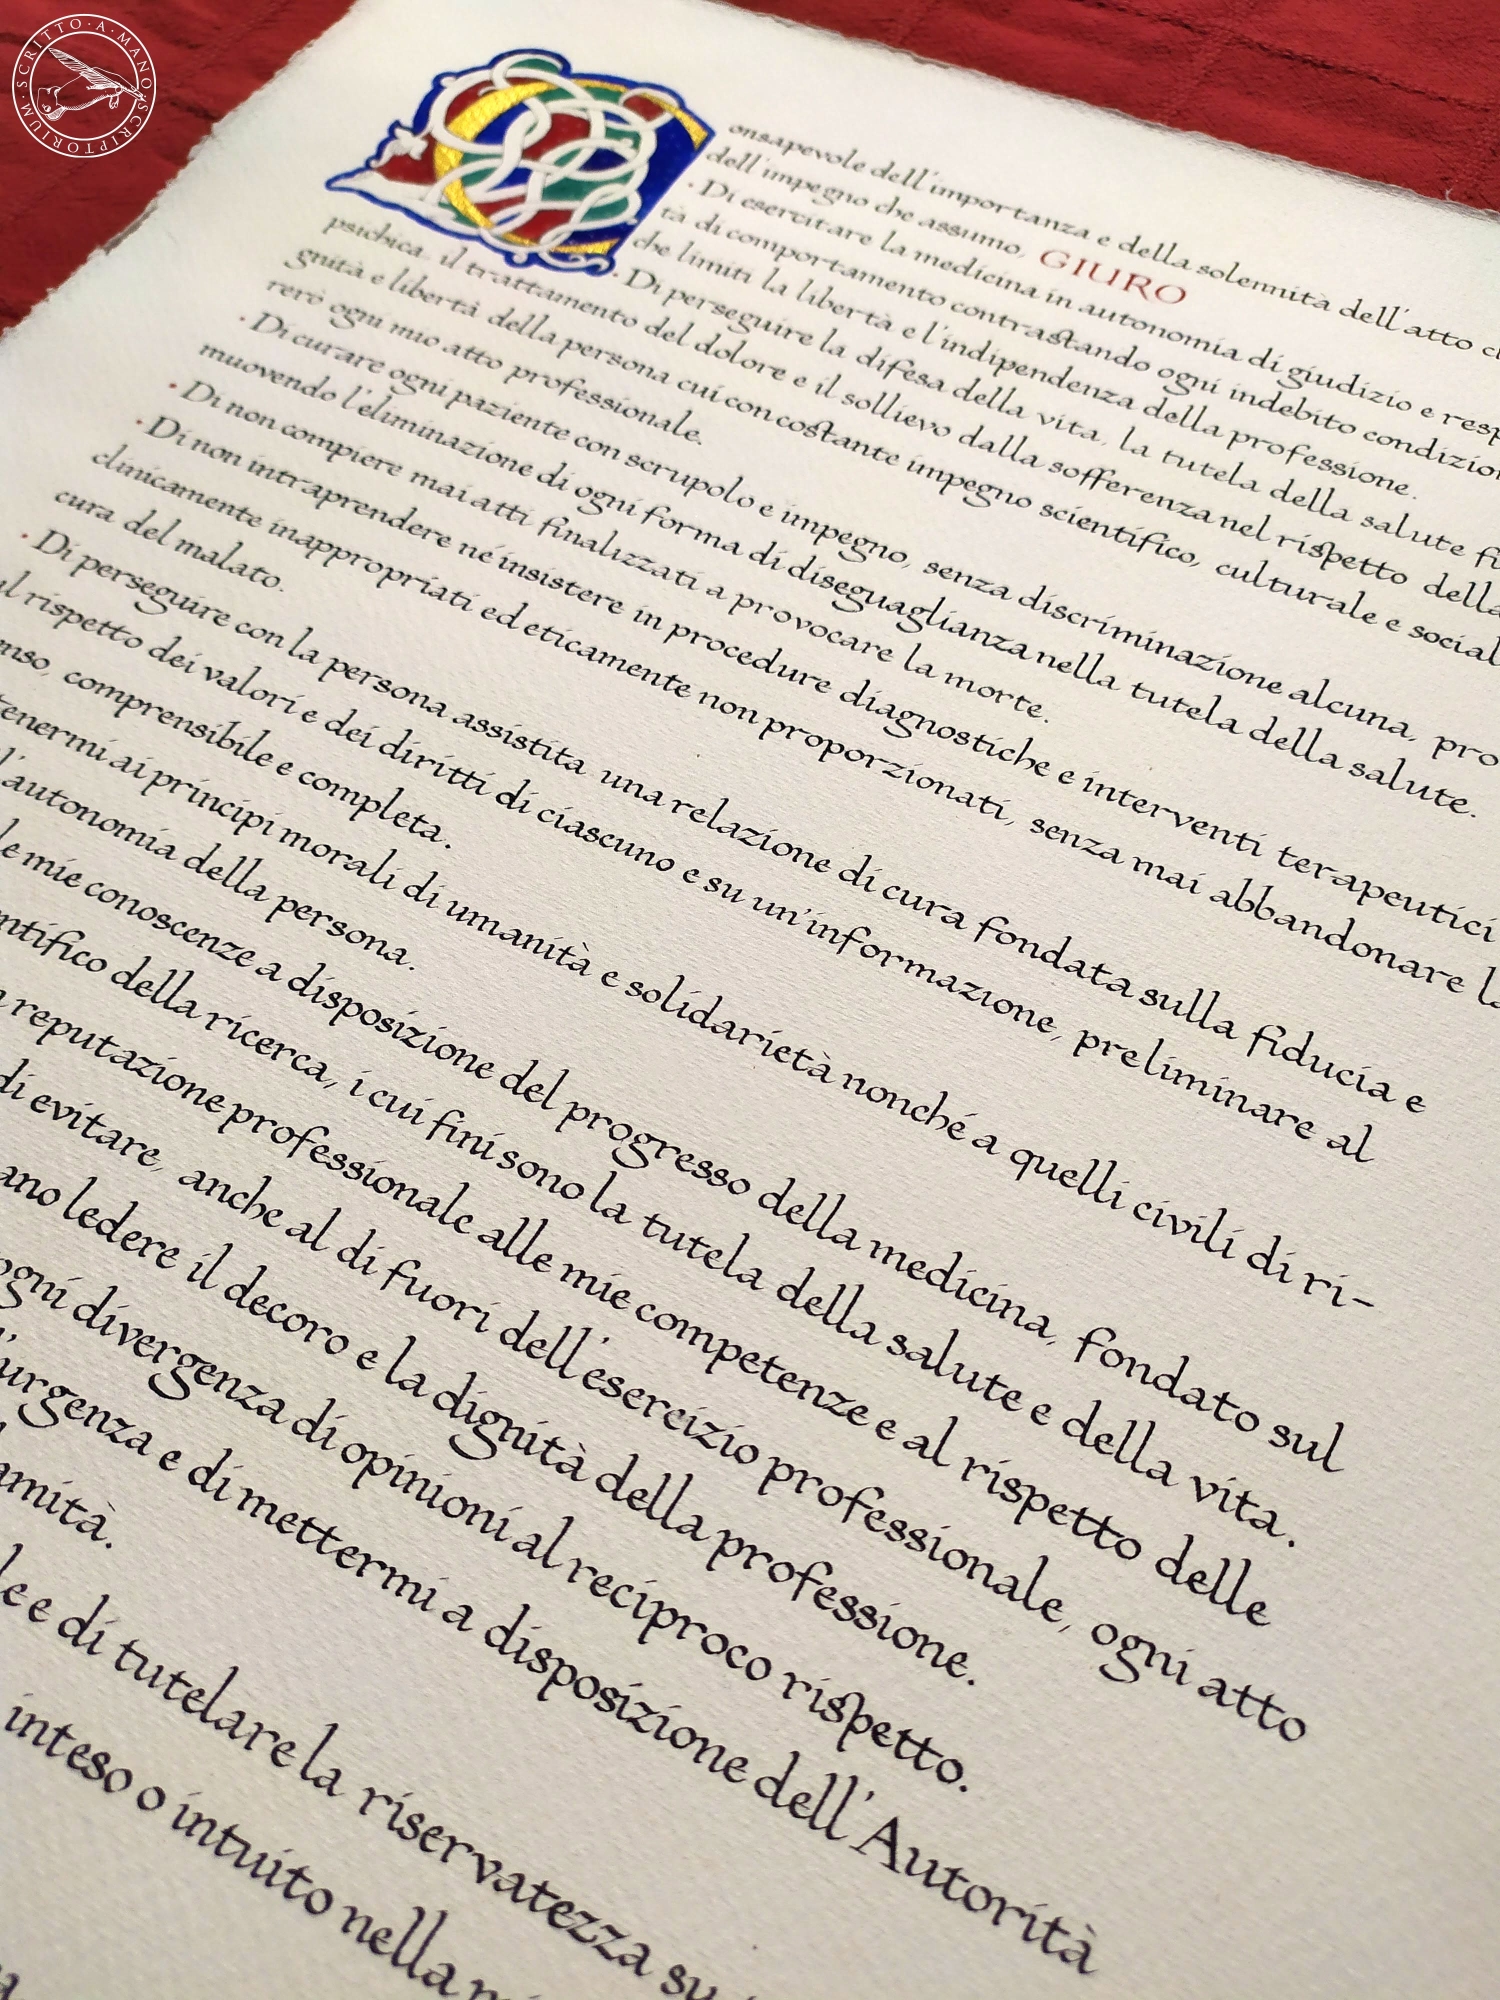 SCRITTO · A · MANO · SCRIPTORIUM ·
Consapevole dell'importanza e della solennità dell'atto
dell'impegno che assumo, GIURO
· Di esercitare la medicina in autonomia di giudizio e
tà di comportamento contrastando ogni indebito
che limiti la libertà e l'indipendenza della professione.
· Di perseguire la difesa della vita, la tutela della salute
psichica, il trattamento del dolore e il sollievo dalla sofferenza nel rispetto della
gnità e libertà della persona cui con costante impegno scientifico, culturale e social
rerò ogni mio atto professionale.
· Di curare ogni paziente con scrupolo e impegno, senza discriminazione alcuna, pro
muovendo l'eliminazione di ogni forma di diseguaglianza nella tutela della salute.
· Di non compiere mai atti finalizzati a provocare la morte.
· Di non intraprendere né insistere in procedure diagnostiche e interventi terapeutici
clinicamente inappropriati ed eticamente non proporzionati, senza mai abbandonare la
cura del malato.
· Di perseguire con la persona assistita una relazione di cura fondata sulla fiducia e
ul rispetto dei valori e dei diritti di ciascuno e su un'informazione, preliminare al
enso, comprensibile e completa.
tenermi ai principi morali di umanità e solidarietà nonché a quelli civili di ri-
l'autonomia della persona.
le mie conoscenze a disposizione del progresso della medicina, fondato sul
ntifico della ricerca, i cui fini sono la tutela della salute e della vita.
reputazione professionale alle mie competenze e al rispetto delle
di evitare, anche al di fuori dell'esercizio professionale, ogni atto
ano ledere il decoro e la dignità della professione.
ogni divergenza di opinioni al reciproco rispetto.
l'urgenza e di mettermi a disposizione dell'Autorità
amità.
le e di tutelare la riservatezza su
inteso o intuito nella